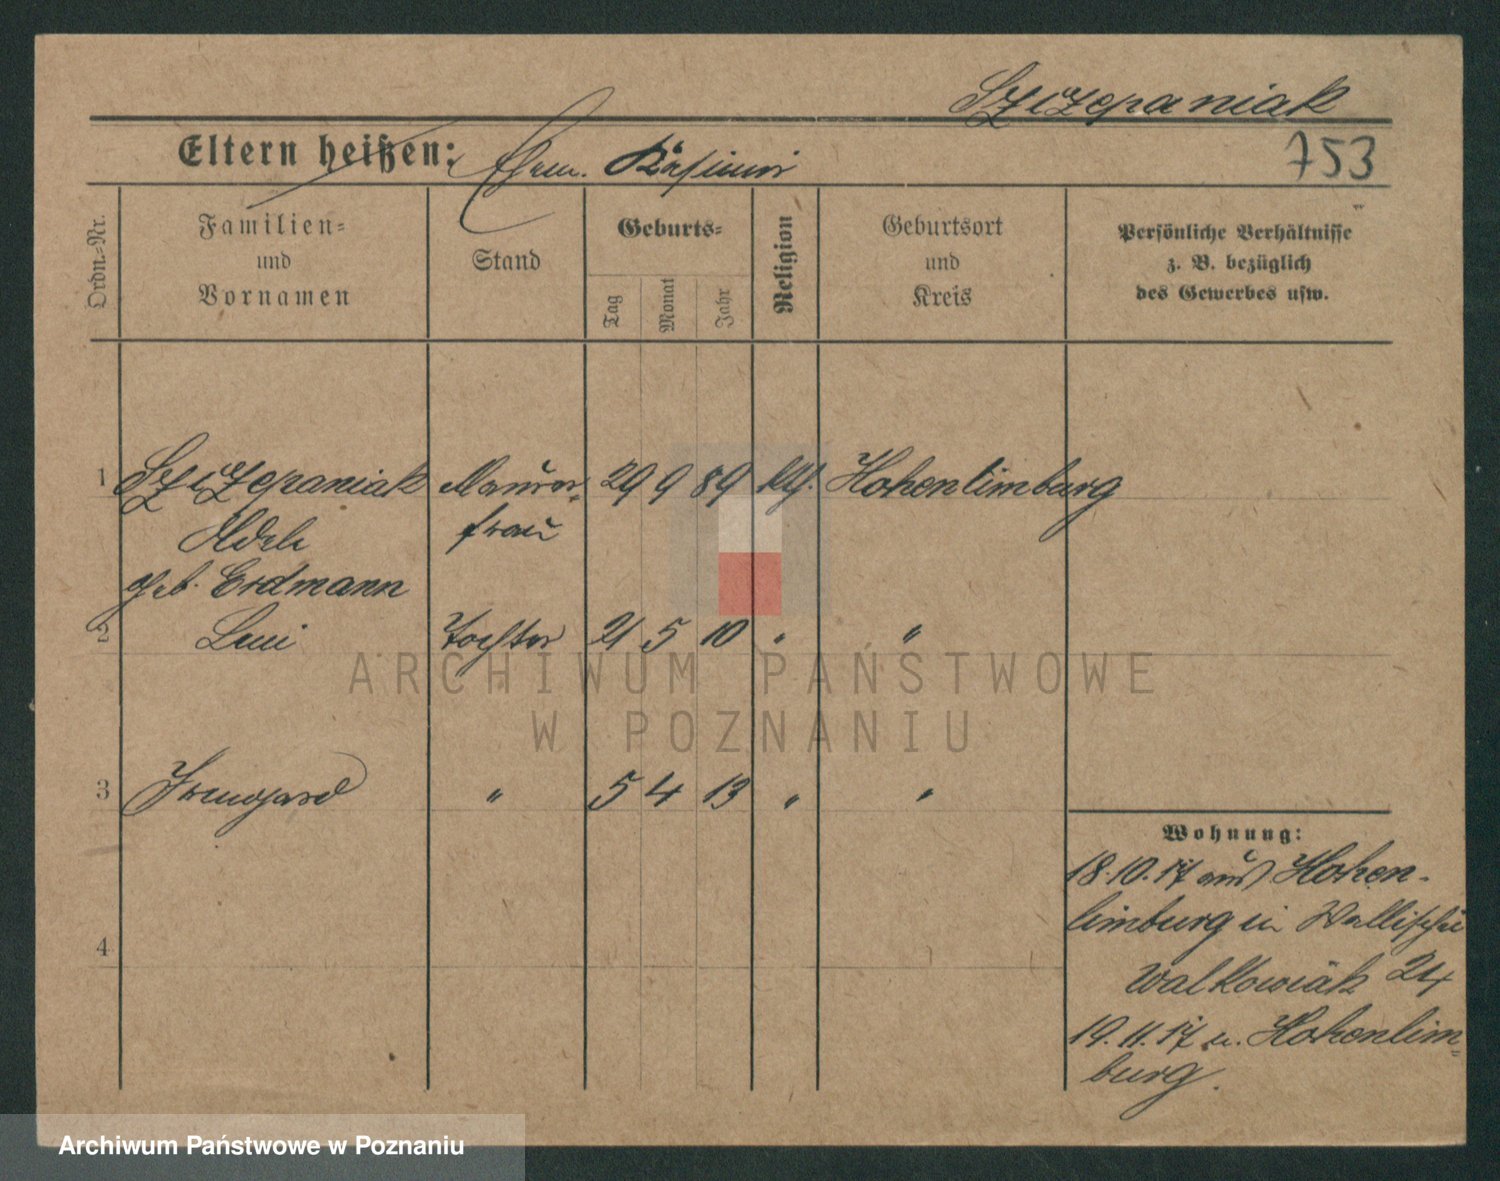 Szczepaniak
Eltern heißen: Ehem. Kasimir
753
Ordn.-Nr.
Familien-
und
Vornamen
Stand
Geburts-
Tag
Monat
Jahr
Religion
Geburtsort
und
Kreis
Persönliche Verhältnisse
z. B. bezüglich
des Gewerbes usw.
1 Szczepaniak Maurer- 29 9 89 kth. Hohenlimburg
Adele frau
geb. Erdmann
2 Leni Tochter 21 5 10 " "
ARCHIWUM PAŃSTWOWE
W POZNANIU
3 Irmgard " 5 4 13 " "
4
Wohnung:
18.10.17 aus Hohen-
limburg in Wallischei
Walkowiak 24
19.11.17 n. Hohenlim-
burg.
Archiwum Państwowe w Poznaniu